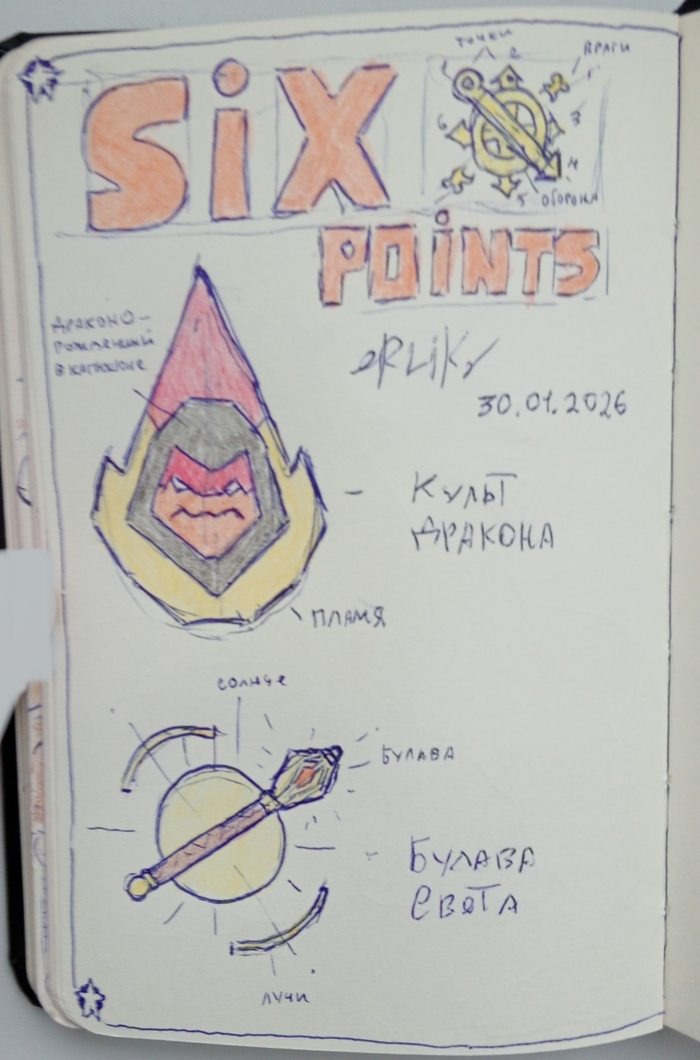 точки
2
ВРАГИ
1
SiX
3
6
4
5
ОБОРОНА
POiNTS
ДРАКОНО-
РОЖДЕННЫЙ
В КАПЮШОНЕ
eRLiKs
30.01.2026
- КУЛЬТ
ДРАКОНА
ПЛАМЯ
СОЛНЦЕ
БУЛАВА
- БУЛАВА
СВЕТА
ЛУЧИ